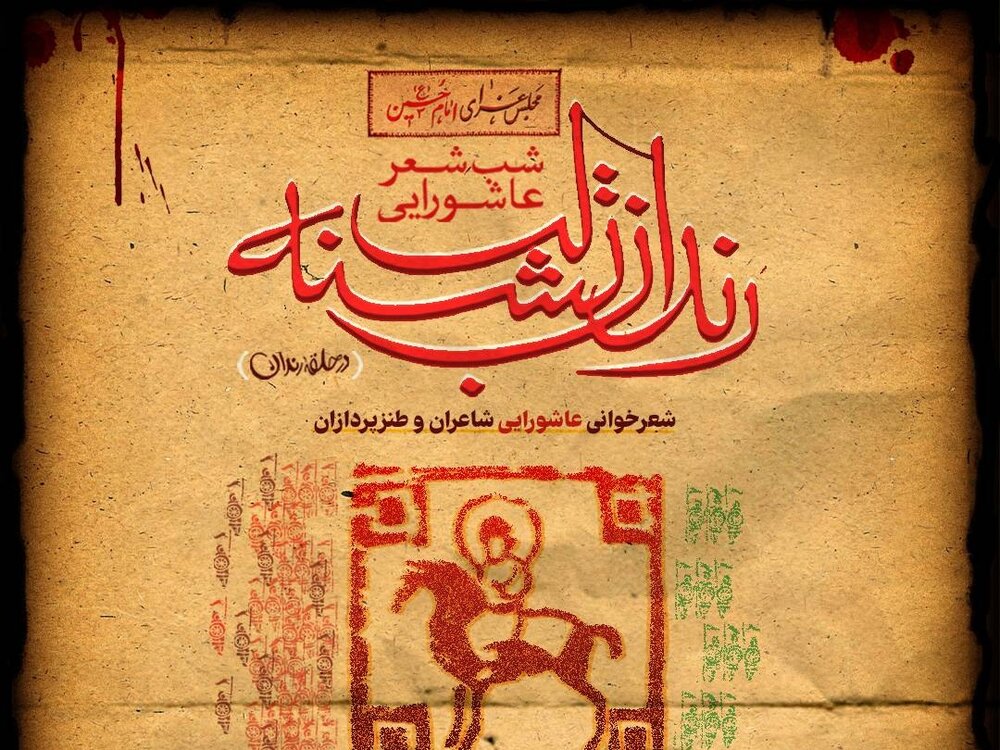 مجلس عزای امام حسین (ع)
شب شعر
عاشورایی
رندان تشنه لب
(در حلقه رندان)
شعرخوانی عاشورایی شاعران و طنزپردازان